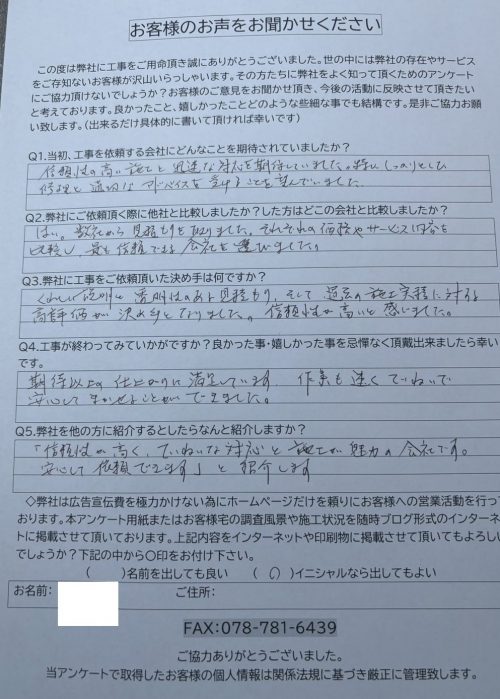 お客様のお声をお聞かせください
この度は弊社に工事をご用命頂き誠にありがとうございました。世の中には弊社の存在やサービス
をご存知ないお客様が沢山いらっしゃいます。その方たちに弊社をよく知って頂くためのアンケート
にご協力頂けないでしょうか？お客様のご意見をお聞かせ頂き、今後の活動に反映させて頂きたい
と考えております。良かったこと、嬉しかったことどのような些細な事でも結構です。是非ご協力お願
い致します。（出来るだけ具体的に書いて頂ければ幸いです）
Q1.当初、工事を依頼する会社にどんなことを期待されていましたか？
信頼性の高い施工と迅速な対応を期待していました。特にしっかりとした
修理と適切なアドバイスを受けることを望んでいました。
Q2.弊社にご依頼頂く際に他社と比較しましたか？した方はどこの会社と比較しましたか？
はい。数社から見積もりを取りました。それぞれの価格やサービス内容を
比較し、最も信頼できる会社を選びました。
Q3.弊社に工事をご依頼頂いた決め手は何ですか？
くわしい説明と透明性のある見積もり、そして過去の施工実績に対する
高評価が決め手となりました。信頼性が高いと感じました。
Q4.工事が終わってみていかがですか？良かった事・嬉しかった事を忌憚なく頂戴出来ましたら幸い
です。
期待以上の仕上がりに満足しています。作業も速くていねいで
安心してまかせることができました。
Q5.弊社を他の方に紹介するとしたらなんと紹介しますか？
「信頼性が高く、ていねいな対応と施工が魅力の会社です。
安心して依頼できます」と紹介します
◇弊社は広告宣伝費を極力かけない為にホームページだけを頼りにお客様への営業活動を行って
おります。本アンケート用紙またはお客様宅の調査風景や施工状況を随時ブログ形式のインターネッ
トに掲載させて頂いております。上記内容をインターネットや印刷物に掲載させて頂いてもよろしい
でしょうか？下記の中から〇印をお付け下さい。
（　　）名前を出しても良い　（ 〇 ）イニシャルなら出してもよい
お名前：　ご住所：
FAX：078-781-6439
ご協力ありがとうございました。
当アンケートで取得したお客様の個人情報は関係法規に基づき厳正に管理致します。